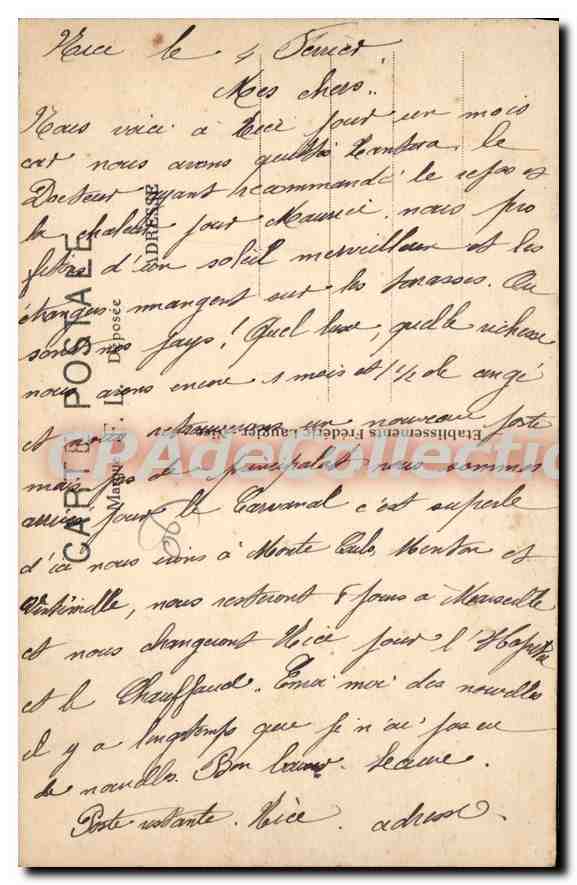 Nice le 4 Fevrier.
Mes chers..
Nous voici à Nice pour un mois
car nous avons quitté le
Docteur ayant recommandé le repos et
la chaleur pour Maurice. nous pro
fitons d'un soleil merveilleux et les
étrangers mangent sur les terrasses. Où
sont nos pays! Quel luxe, quelle richesse
nous avons encore 1 mois et 1 1/2 de congé
et nous retrouverons un nouveau poste
mais pas de principalat nous sommes
arrivés pour le Carnaval c'est superbe
d'ici nous irons à Monte Carlo, Menton et
Vintimille, nous resteront 8 jours à Marseille
et nous changeront Nice pour l'
et le Chauffaud.. Envoi moi des nouvelles
il y a longtemps que je n'ai pas eu
de nouvelles. Bon
Poste restante. Nice. adresse.
CARTE POSTALE
Marque E. L. Déposée
ADRESSE
Etablissements Frédéric Laugier, Nice
CPAdeCollection